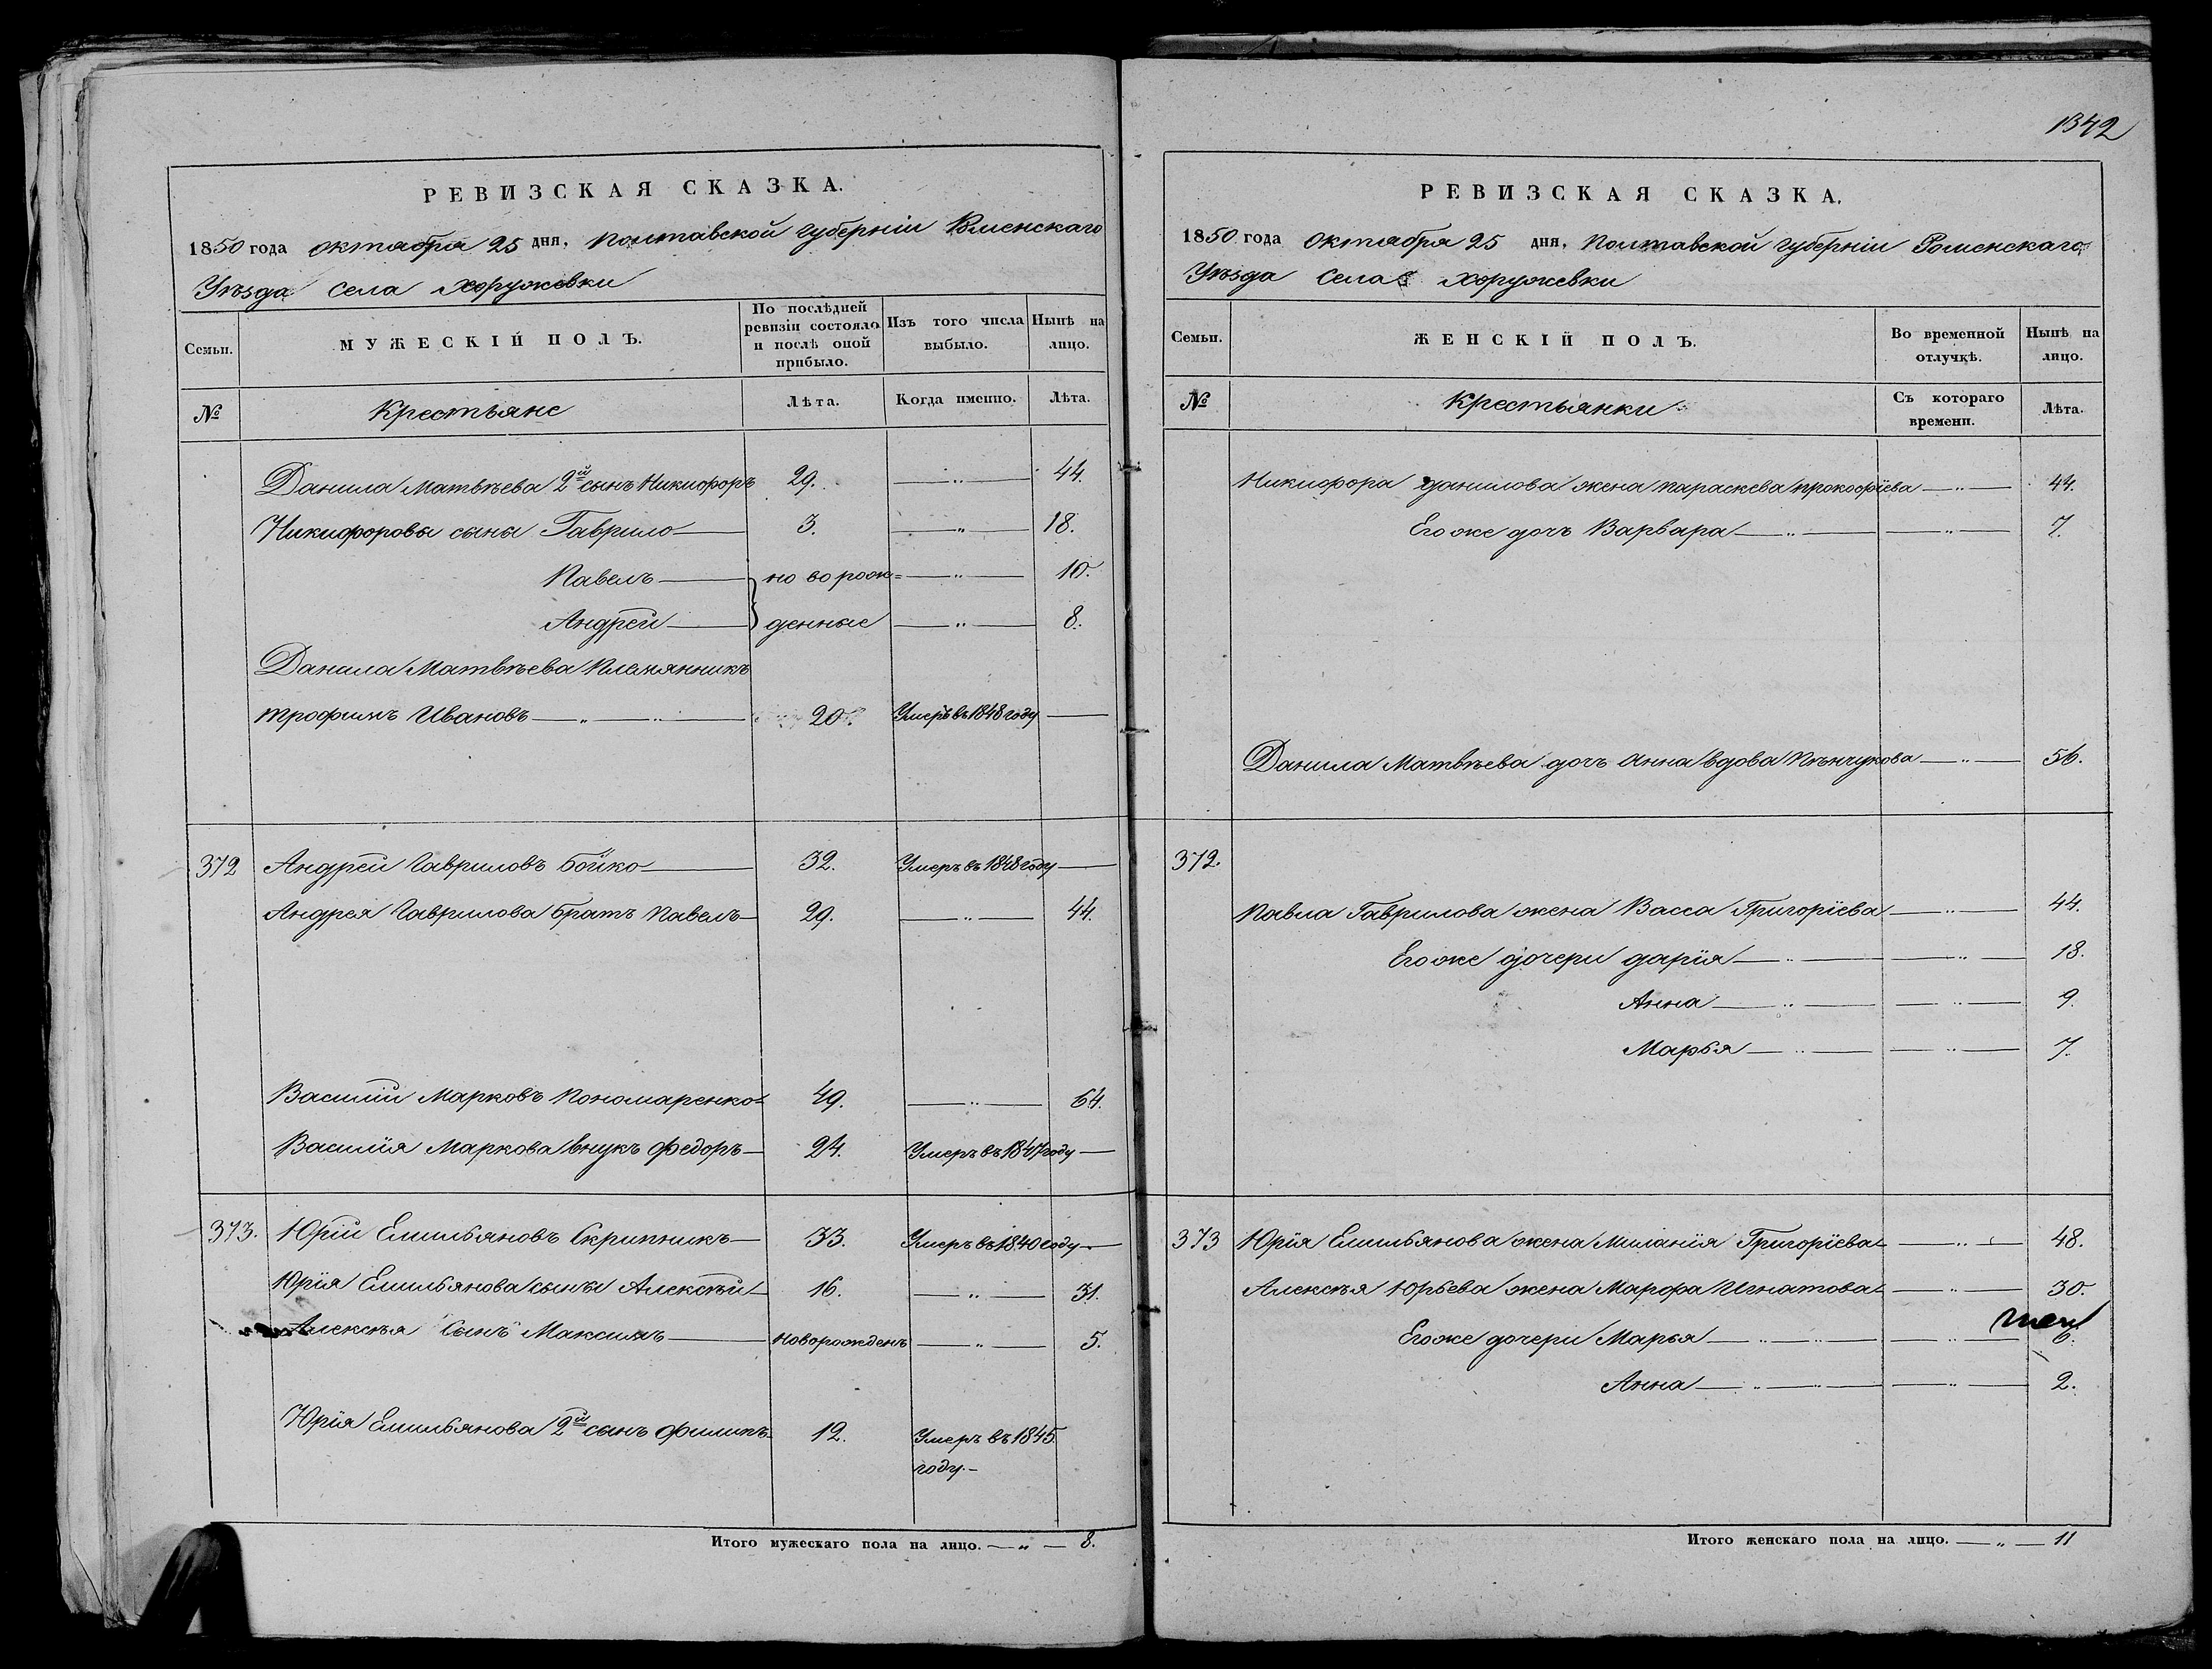 РЕВИЗСКАЯ СКАЗКА.
1850 года октября 25 дня, Полтавской губерніи Роменскаго
Уѣзда села Хоружевки
Семьи. МУЖЕСКІЙ ПОЛЪ. По послѣдней ревизіи состояло и послѣ оной прибыло. Изъ того числа выбыло. Нынѣ на лицо.
№ Крестьяне Лѣта. Когда именно. Лѣта.
Данила Матвѣева 2й сынъ Никифоръ 29. — „ — 44.
Никифоровы сыны Гаврило — 3. — „ — 18.
Павелъ — новорож= — „ — 10.
Андрей — денные — „ — 8.
Данила Матвѣева племянникъ
Трофимъ Ивановъ — „ — „ — 20. Умеръ въ 1848 году —
372 Андрей Гавриловъ Бойко — 32. Умеръ въ 1848 году —
Андрея Гаврилова братъ Павелъ — 29. — „ — 44.
Василій Марковъ Пономаренко — 49. — „ — 64.
Василія Маркова внукъ Федоръ — 24. Умеръ въ 1847 году —
373. Юрій Емильяновъ Скрипникъ — 33. Умеръ въ 1840 году —
Юрія Емильянова сыны Алексѣй — 16. — „ — 31.
Алексѣя сынъ Максимъ — новорожденъ — „ — 5.
Юрія Емильянова 2й сынъ Филипъ — 12. Умеръ въ 1845
году. —
Итого мужескаго пола на лицо. — „ — 8.
1342
РЕВИЗСКАЯ СКАЗКА.
1850 года Октября 25 дня, Полтавской губерніи Роменскаго
Уѣзда села Хоружевки
Семьи. ЖЕНСКІЙ ПОЛЪ. Во временной отлучкѣ. Нынѣ на лицо.
№ Крестьянки Съ котораго времени. Лѣта.
Никифора Данилова жена Параскева Прокофіева — „ — 44.
Его же дочь Варвара — „ — — „ — 7.
Данила Матвѣева дочь Анна вдова — „ — 56.
372.
Павла Гаврилова жена Васса Григоріева — „ — 44.
Его же дочери Дарія — „ — — „ — 18.
Анна — „ — — „ — 9.
Марья — „ — — „ — 7.
373 Юрія Емильянова жена Миланія Григоріева — „ — 48.
Алексѣя Юрьева жена Марфа Игнатова — „ — 30.
Его же дочери Марья — „ — „ — — „ — 6.
Анна — „ — „ — — „ — 2.
Итого женскаго пола на лицо. — „ — 11